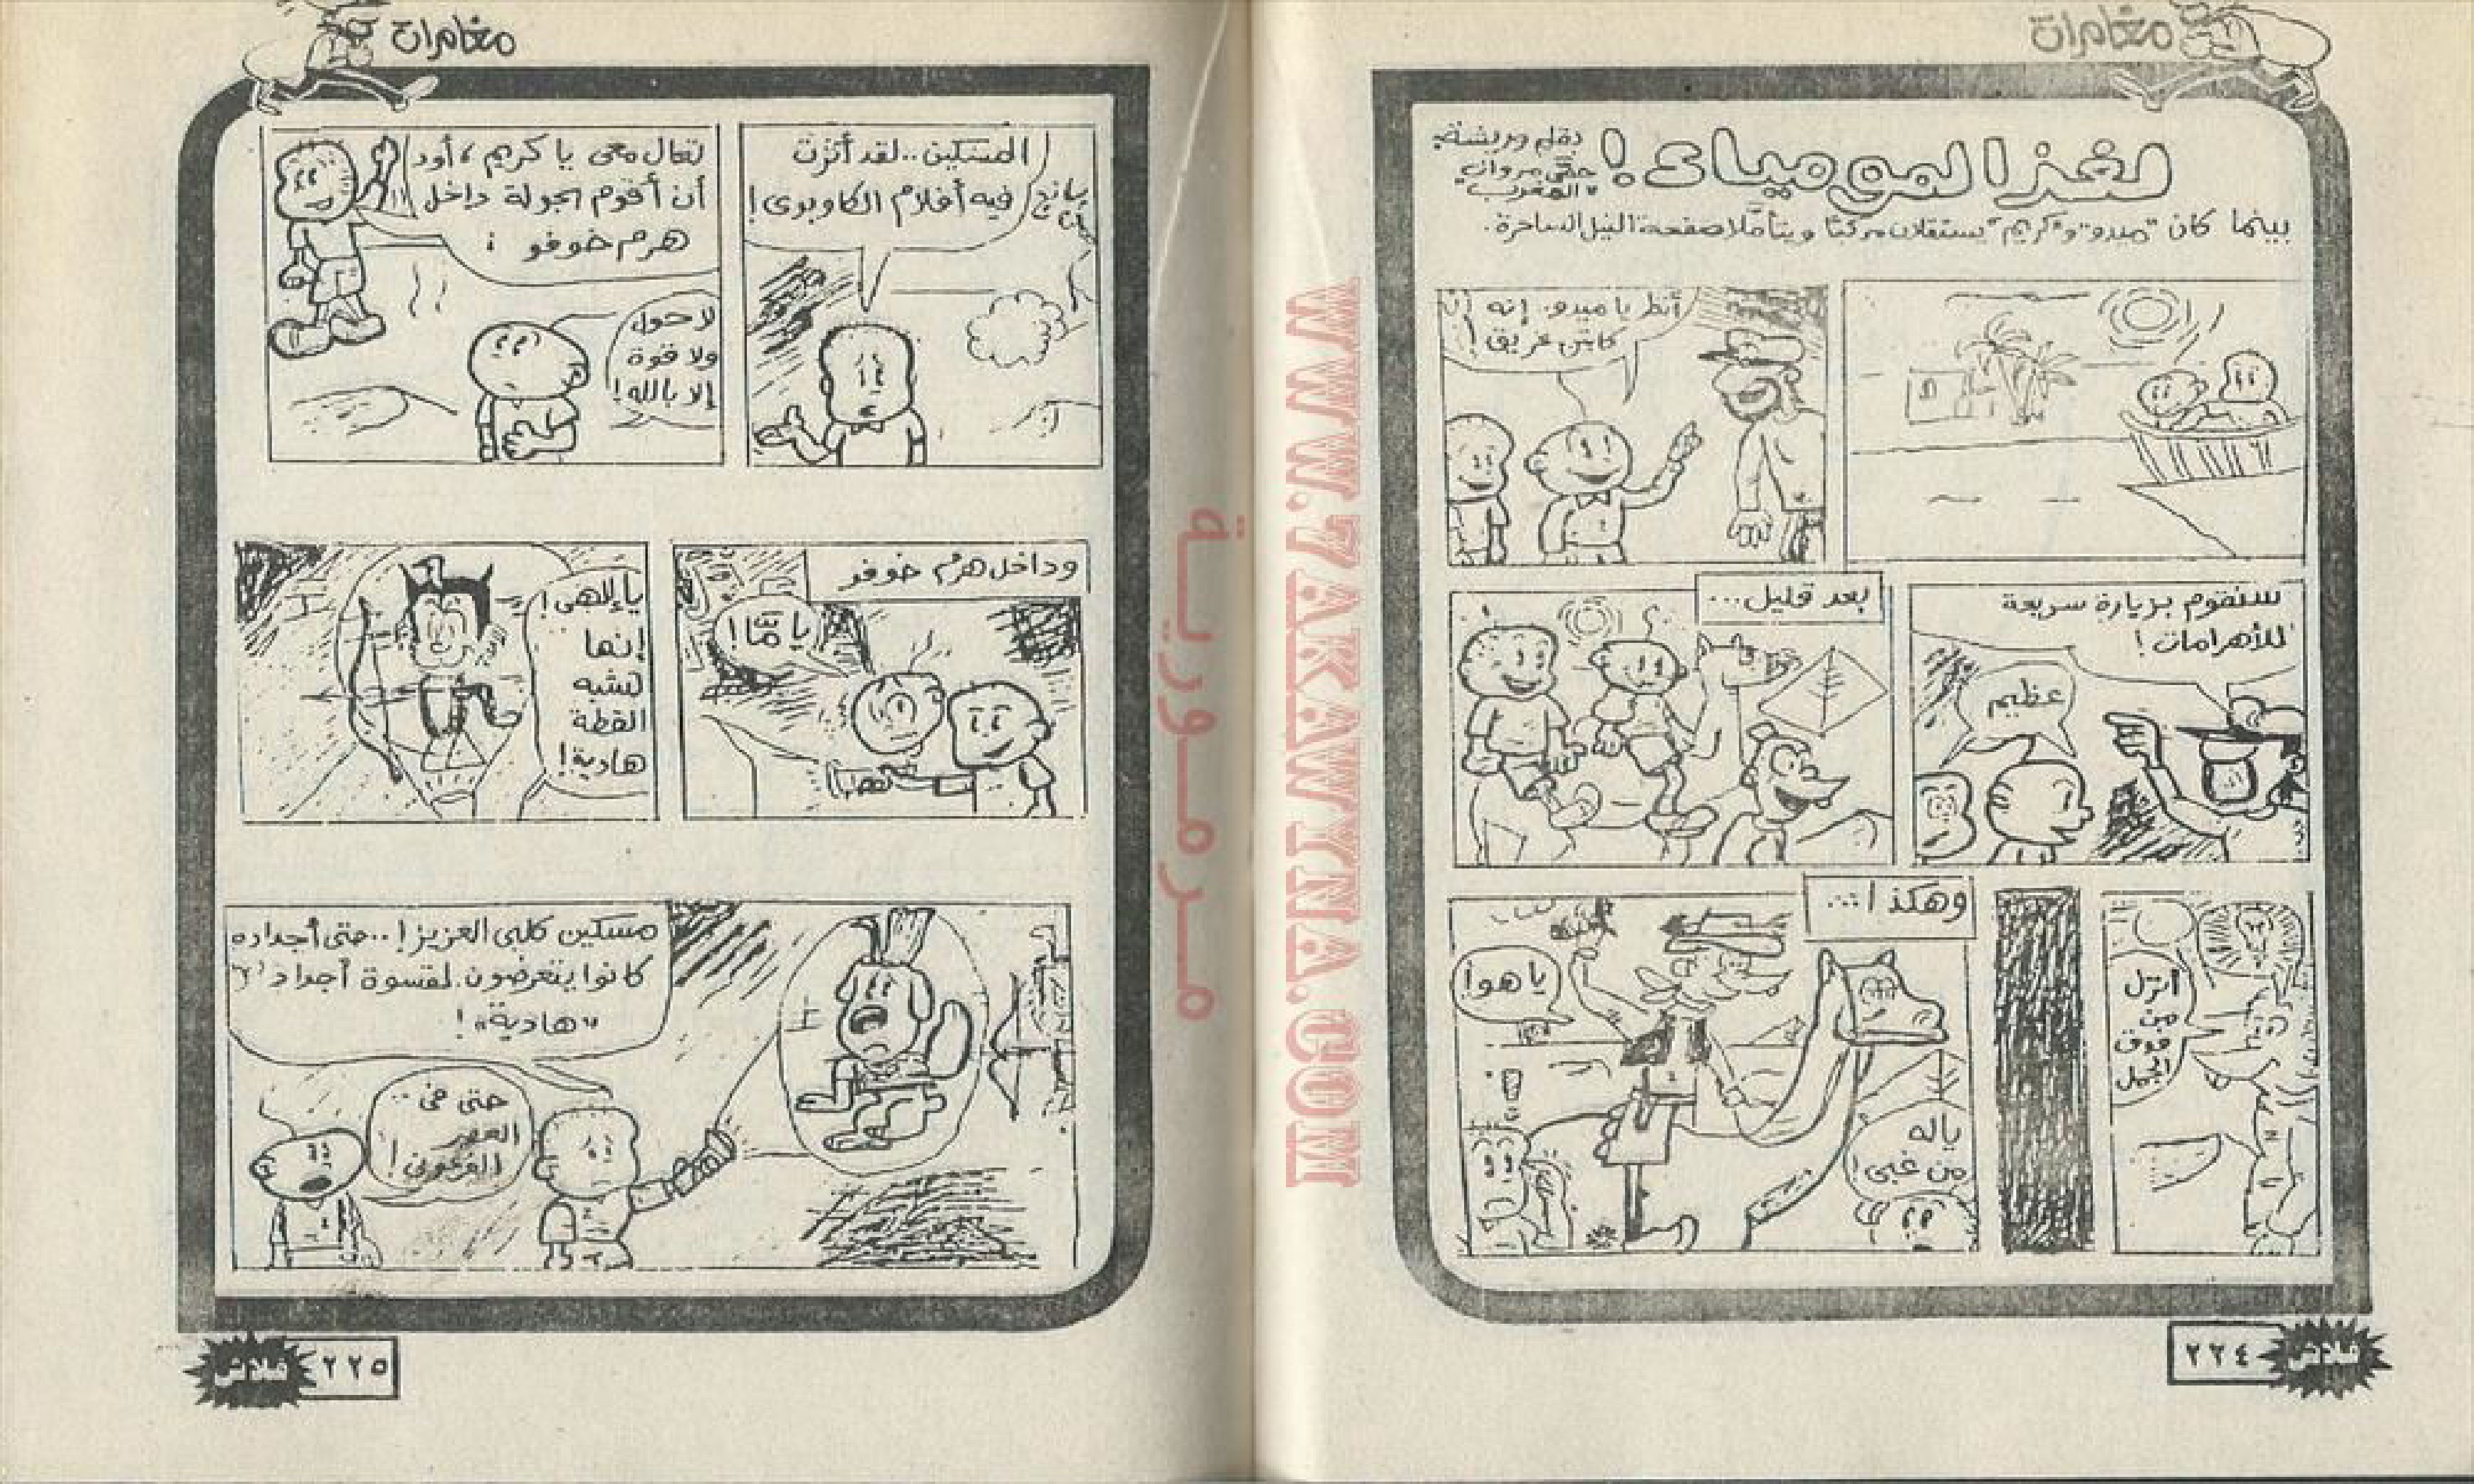 مغامرات
لغز المومياء!
بقلم وريشة:
حقي مروان
"المغرب"
بينما كان "ميدو" و"كريم" يستقلان مركبًا ويتأملا صفحة النيل الساحرة.
أنظر يا ميدو. إنه
كابتن عريق!
سنقوم بزيارة سريعة
للأهرامات!
عظيم
بعد قليل...
أنزل
من
فوق
الجمل
وهكذا...
يا هوا!
ياله
من غبي!
٢٢٤
فلاش
مغامرات
المسكين.. لقد أثرت
فيه أفلام الكاوبوى!
تعال معى يا كريم، أود
أن أقوم بجولة داخل
هرم خوفو
لا حول
ولا قوة
إلا بالله!
وداخل هرم خوفو
يا مّا!
يا إلاهى!
إنها
تشبه
القطة
هادية!
مسكين كلبى العزيز!.. حتى أجداده
كانوا يتعرضون لقسوة أجداد
"هادية"!
حتى فى..
العهد
الفرعونى!
٢٢٥
فلاش
مرمورية
WWW.7AKAWYNA.COM